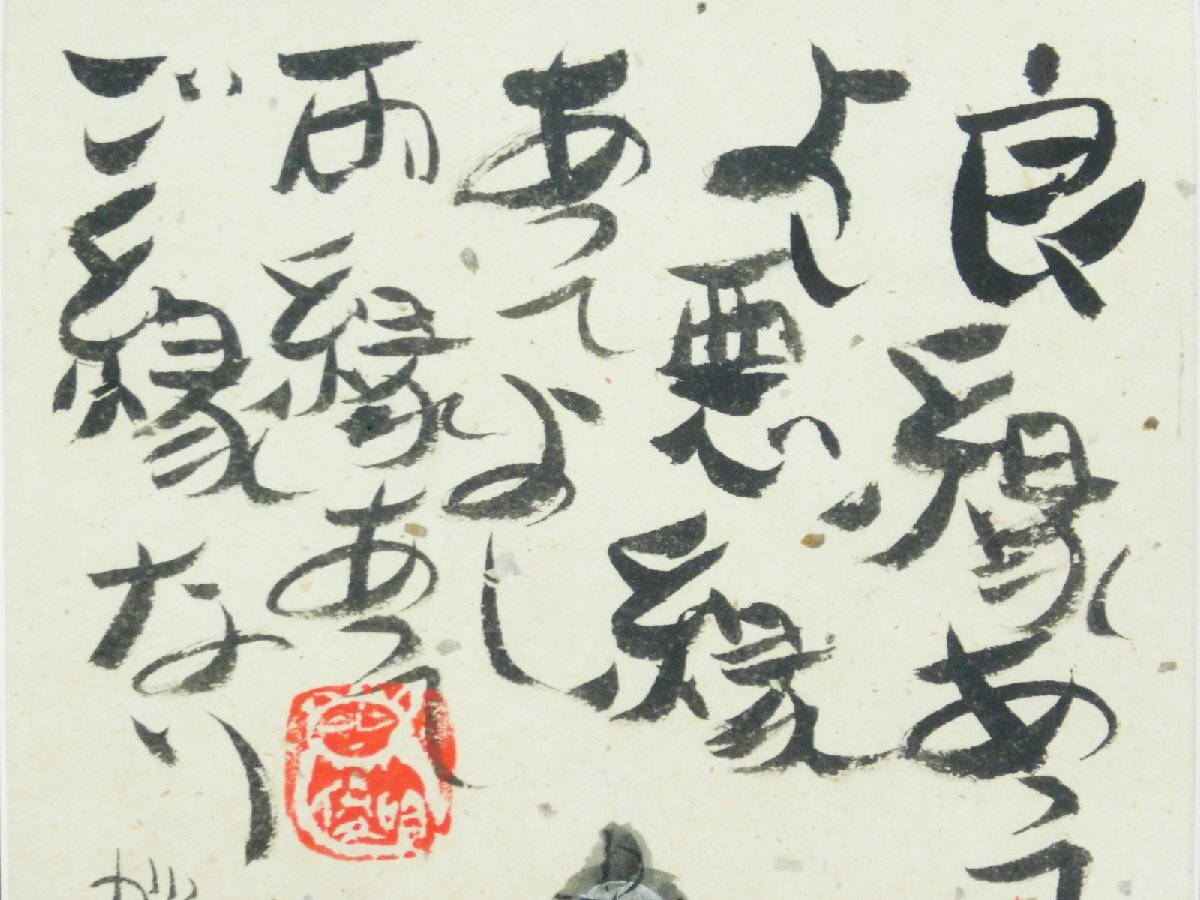 良縁あって
よし悪縁
あってよし
両縁あって
ご縁なり